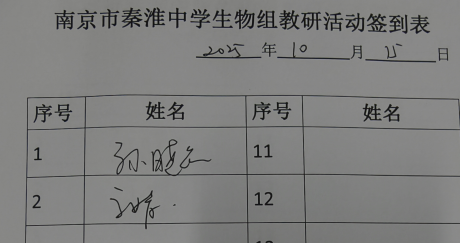 南京市秦淮中学生物组教研活动签到表
2025 年 10 月 15 日
序号 姓名 序号 姓名
1 孙晓 11
2 12